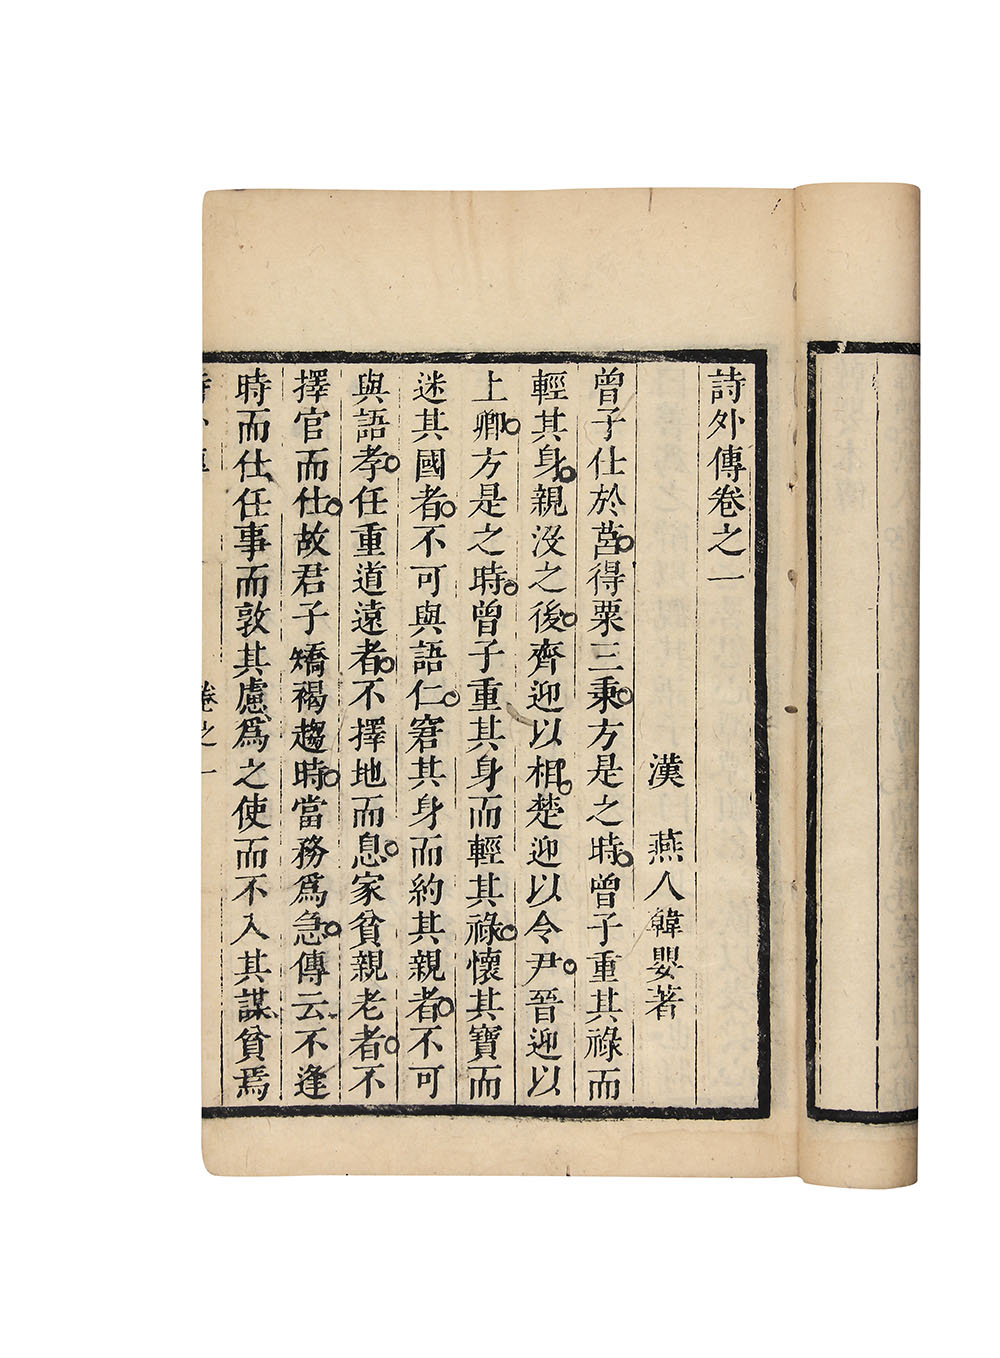 詩外傳卷之一
漢 燕人韓嬰著
曾子仕於莒得粟三秉方是之時曾子重其祿而
輕其身親沒之後齊迎以相楚迎以令尹晉迎以
上卿方是之時曾子重其身而輕其祿懷其寶而
迷其國者不可與語仁窘其身而約其親者不可
與語孝任重道遠者不擇地而息家貧親老者不
擇官而仕故君子矯褐趨時當務爲急傳云不逢
時而仕任事而敦其慮爲之使而不入其謀貧焉
卷之一